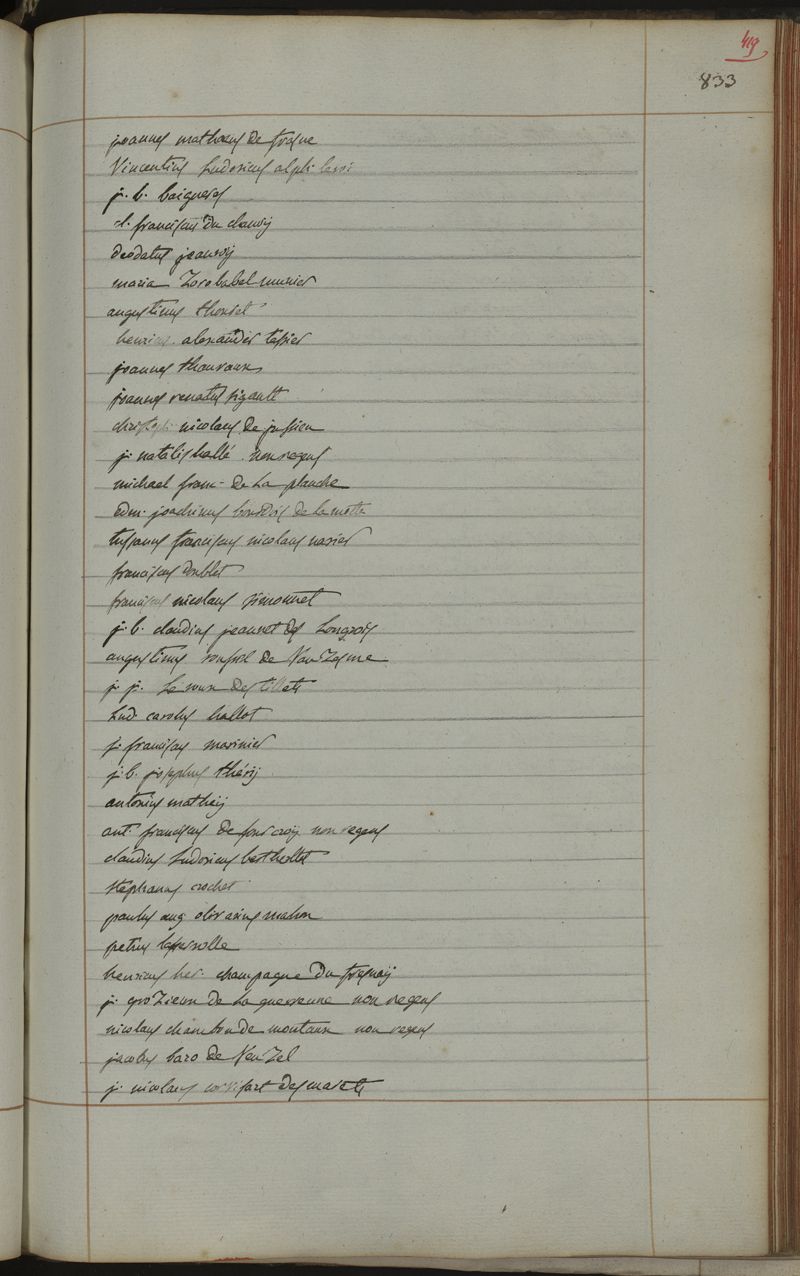 419
833
joannes mathaeus de frasne
Vincentius Ludovicus alph. leroi
j. b. baignieres
cl. franciscus du chanoy
deodatus jeanroy
maria Zorobabel munier
augustinus thouret
henricus alexander tessier
joannes thauraux
joannes renatus sigault
christoph. nicolaus de jussieu
j. natalis hallé non regens
michael franc. de La planche
edm. joachimus bourdois de la motte
tussanus franciscus nicolaus navier
franciscus doublet
franciscus nicolaus simonnet
j. b. claudius jeannet des Longrois
augustinus roussel de Vauzesme
j. j. Le roux des tillets
Lud. carolus hallot
j. franciscus marinier
j. b. josephus théry
antonius mathey
ant. franciscus de fourcroy non regens
claudius Ludovicus berthollet
stephanus crochet
paulus aug. olivarius mahon
petrus lasservolle
henricus her. champagne Du fresnay
j. grozieux de La guerenne non regens
nicolaus chambon de montaux non regens
jacobus baro de Venzel
j. nicolaus corvisart desmarets